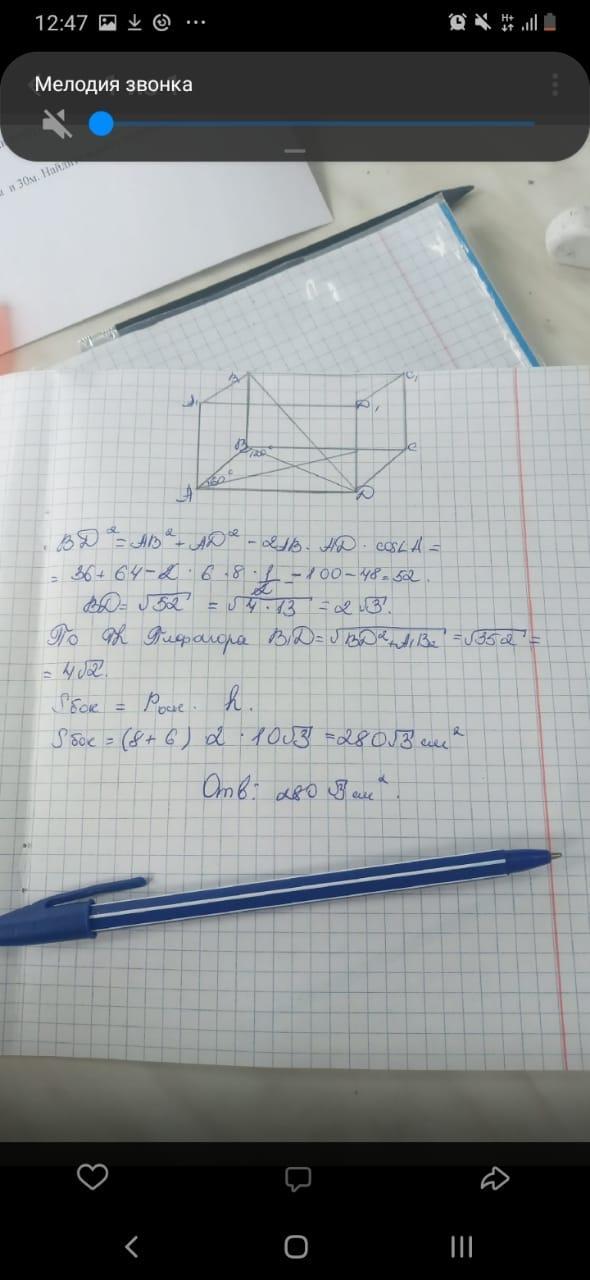 12:47
Мелодия звонка
и 30м. Найти
B₁ C₁
A₁ D₁
B 120° C
A 60° D
BD² = AB² + AD² - 2AB · AD · cos∠A =
= 36 + 64 - 2 · 6 · 8 · 1/2 = 100 - 48 = 52.
BD = √52 = √4·13 = 2√3.
По Пифагора B₁D = √BD² + = √352 =
= 4√2.
Sбок = Росн · h.
Sбок = (8 + 6) 2 · 10√3 = 280√3 см²
Отв: 280√3 см².